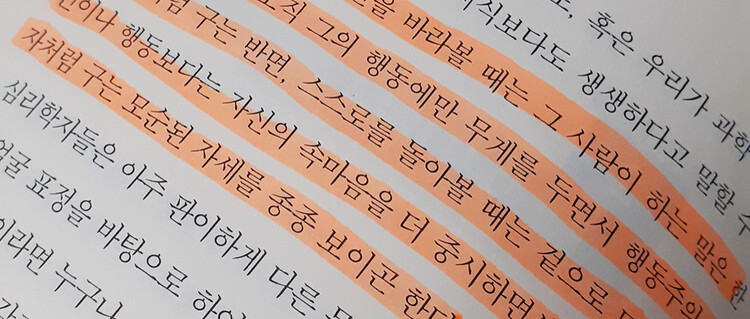 혹은 우리가 과학
식보다도 생생하다고 말할 수
을 바라볼 때는 그 사람이 하는 말은
오직 그의 행동에만 무게를 두면서 행동주의
처럼 구는 반면, 스스로를 돌아볼 때는 겉으로
이나 행동보다는 자신의 속마음을 더 중시하면
자처럼 구는 모순된 자세를 종종 보이곤 한다
심리학자들은 아주 판이하게 다른
얼굴 표정을 바탕으로
이라면 누구나